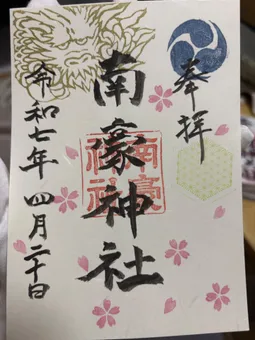 奉拝
南濠神社
南濠神社
令和七年 四月二十日